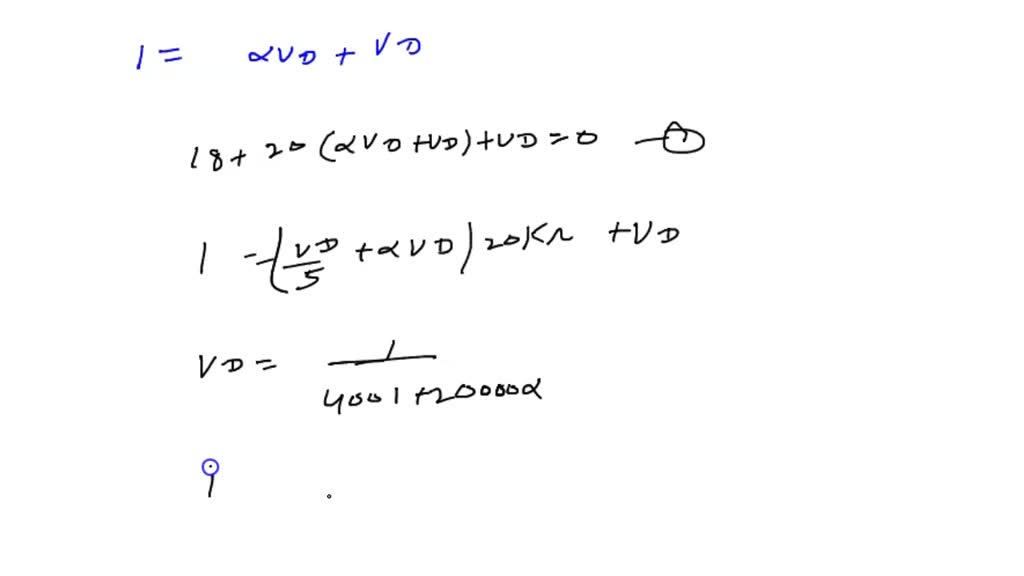 1 = αVD + VD
18 + 20 (αVD + VD) + VD = 0 —Ⓐ
1 - (VD/5 + αVD) 20KΩ + VD
VD = 1/(4001 + 20000α)